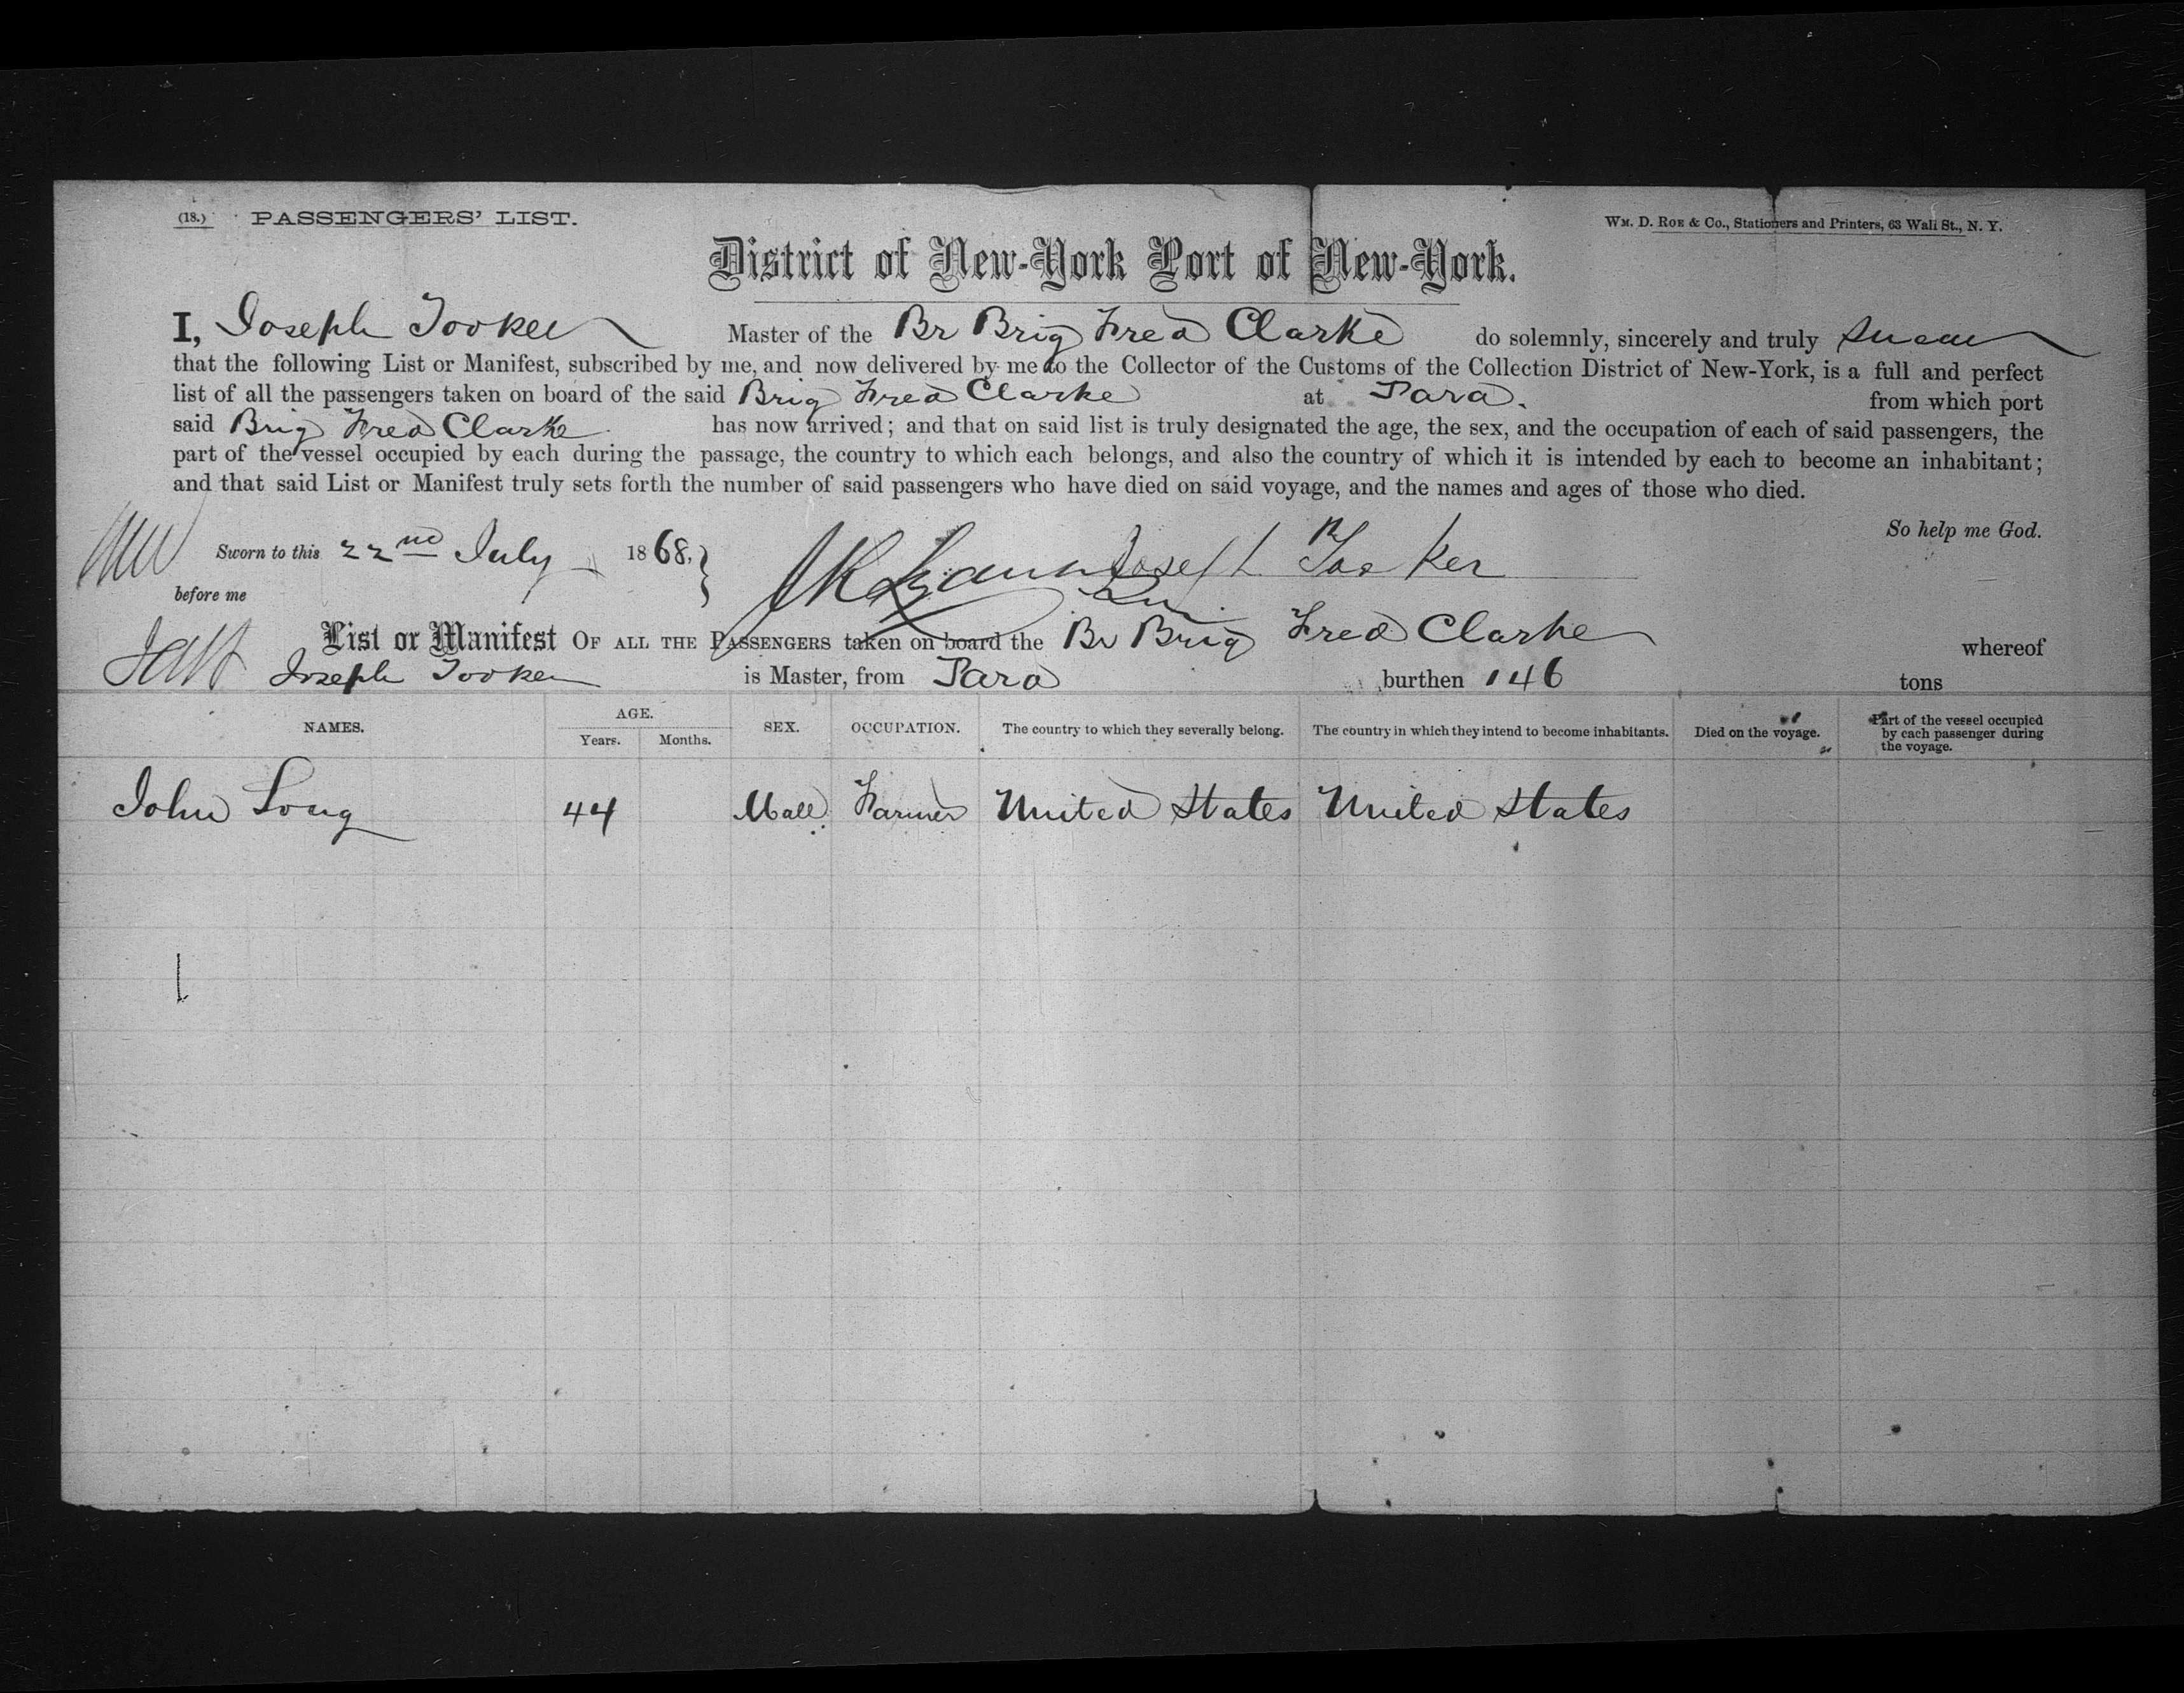 (18.) PASSENGERS' LIST.
WM. D. ROE & Co., Stationers and Printers, 63 Wall St., N. Y.
District of New-York Port of New-York.
I, Joseph Tooker Master of the Br Brig Fred Clarke do solemnly, sincerely and truly swear
that the following List or Manifest, subscribed by me, and now delivered by me to the Collector of the Customs of the Collection District of New-York, is a full and perfect
list of all the passengers taken on board of the said Brig Fred Clarke at Para. from which port
said Brig Fred Clarke has now arrived; and that on said list is truly designated the age, the sex, and the occupation of each of said passengers, the
part of the vessel occupied by each during the passage, the country to which each belongs, and also the country of which it is intended by each to become an inhabitant;
and that said List or Manifest truly sets forth the number of said passengers who have died on said voyage, and the names and ages of those who died.
So help me God.
Sworn to this 22nd July 1868, Joseph Tooker
before me
List or Manifest OF ALL THE PASSENGERS taken on board the Br Brig Fred Clarke whereof
Joseph Tooker is Master, from Para burthen 146 tons
NAMES. AGE. Years. Months. SEX. OCCUPATION. The country to which they severally belong. The country in which they intend to become inhabitants. Died on the voyage. Part of the vessel occupied by each passenger during the voyage.
John Long 44 Male Farmer United States United States